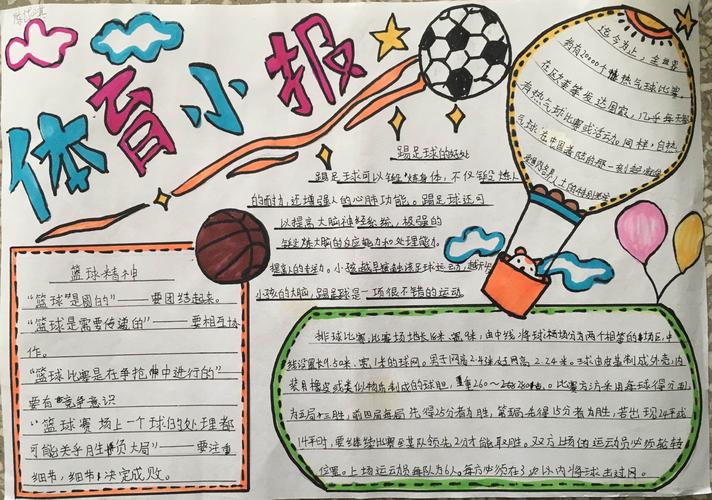 体育小报
迄今为止,全世界
约有20000个热气球比赛,
在欧美等发达国家,几乎每天都
有热气球比赛或活动。同样,自热
气球在中国
踢足球的好处
踢足球可以锻炼身体,不仅锻炼人
的耐力,还增强人的心肺功能。踢足球还可
以提高大脑神经系统,极强的
锻炼大脑的反应能力和处理能力。
提高人的。小孩越早接触该足球运动,越
小孩的大脑,踢足球是一项很不错的运动
篮球精神
“篮球”是圆的”——要团结起来。
“篮球是需要传递的”——要相互协
作。
“篮球比赛是在争抢中进行的”——
要有竞争意识
“篮球赛场上一个球的处理都
可能关乎胜负大局”——要注重
细节,细节决定成败。
排球比赛,比赛场地长18米、宽9米,由中线将球场分为两个相等的场区,中
线设置长9.50米、宽1米的球网。男子网高2.43米,女网高2.24米。球由皮革制成外壳,内
装用橡皮或类似物质制成的球胆,重260~280克。比赛方法采用每球得分制
为五局三胜,前四局每局先得25分者为胜,第五局先得15分者为胜,若出现24平或
14平时,要继续比赛至某队领先2分才能取胜。双方上场的运动员必须轮转
位置。上场运动员每队为6人。每方必须在3次以内将球击过网。